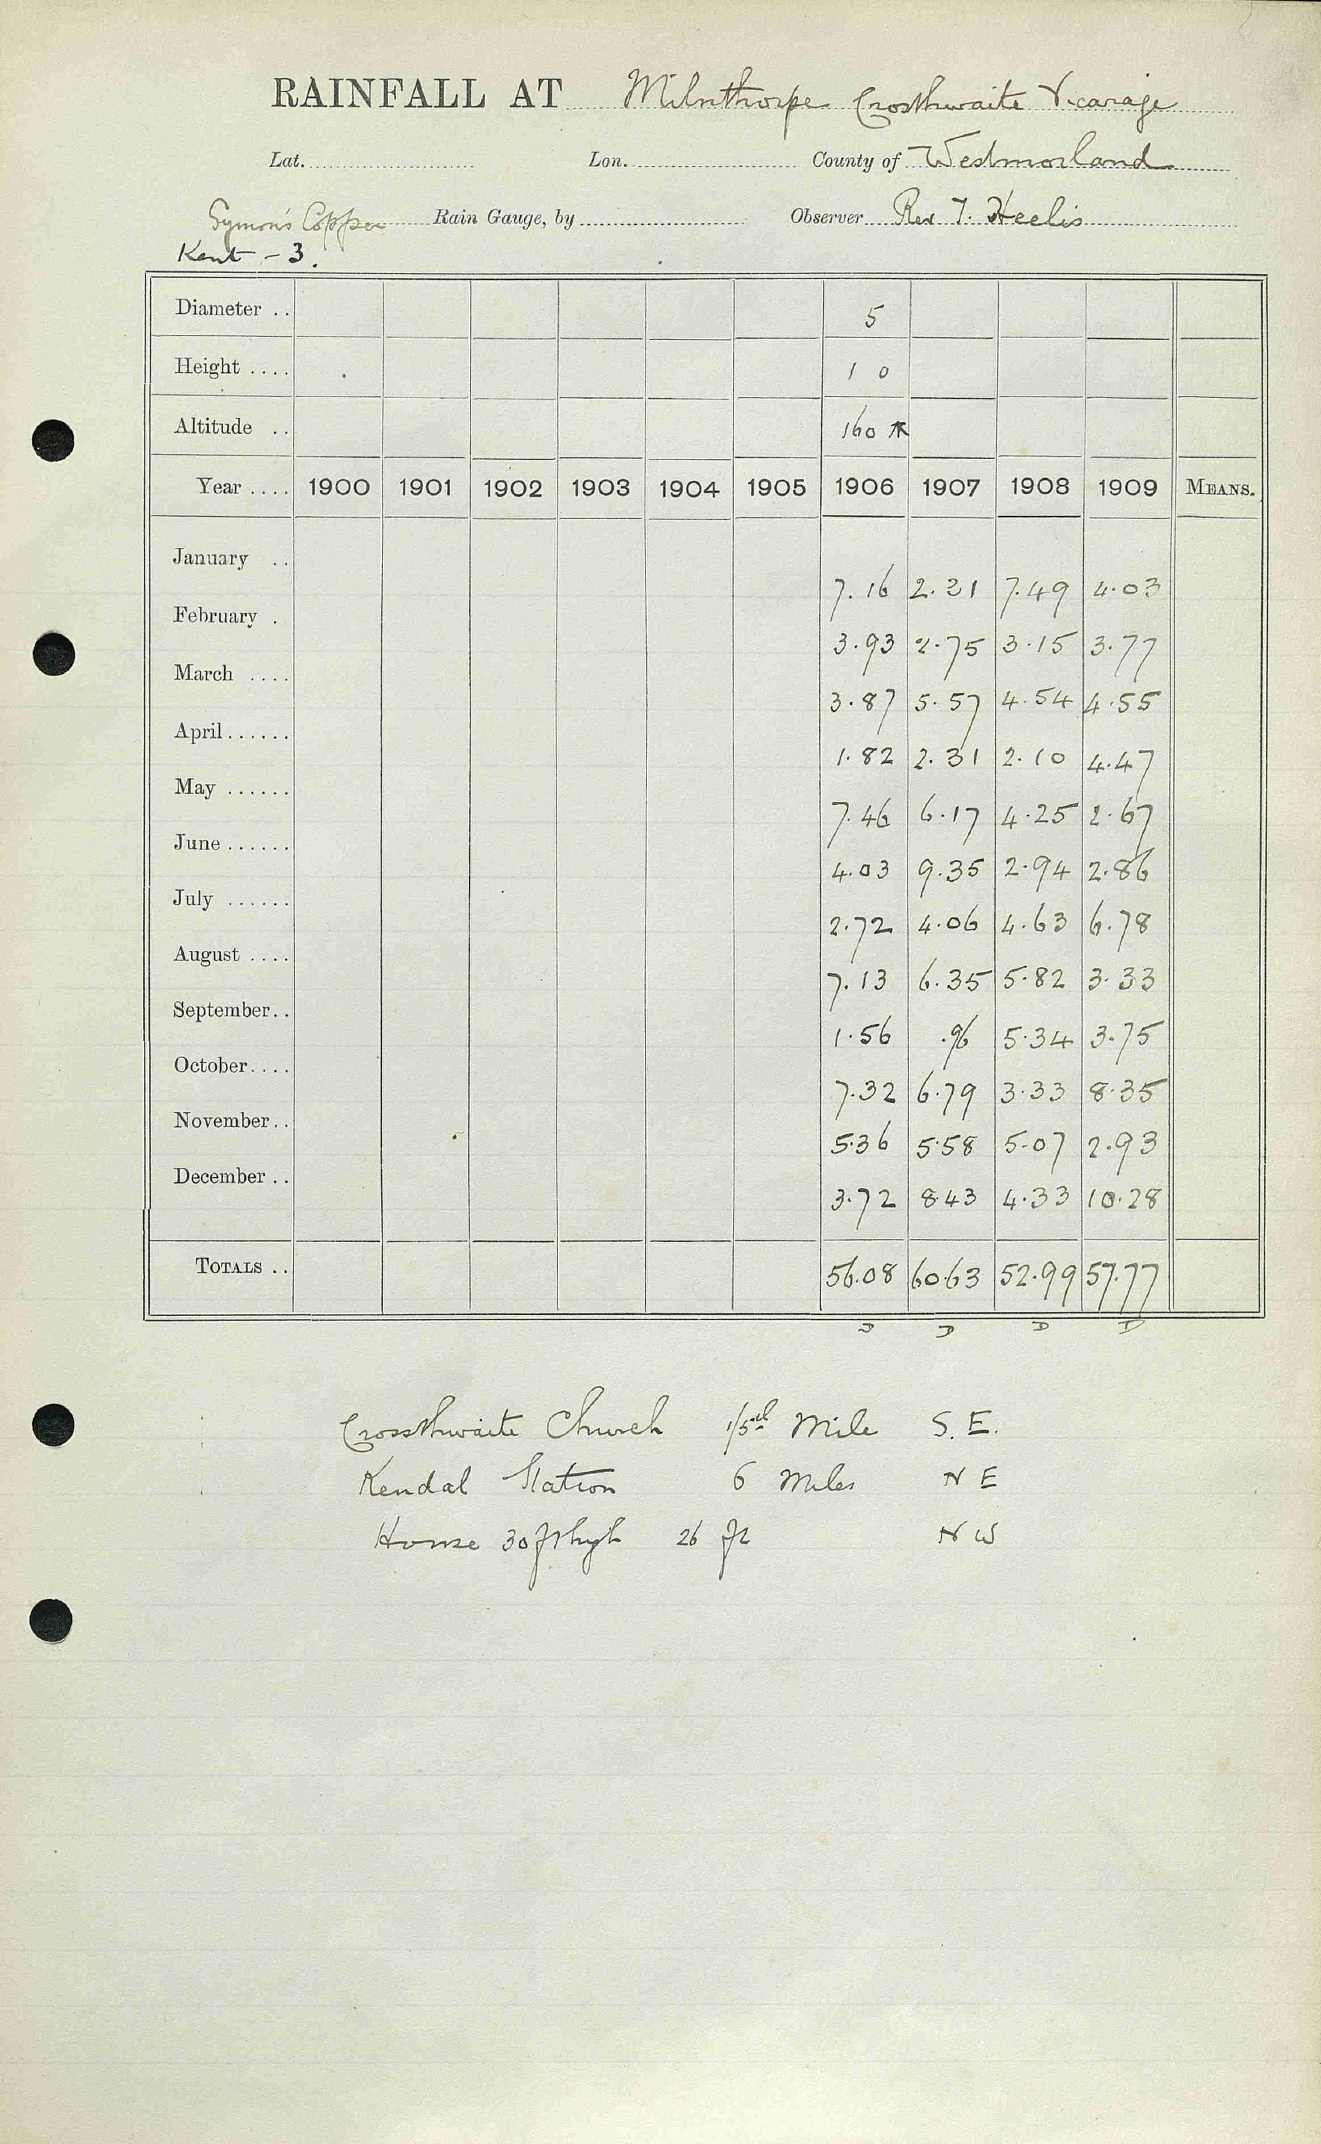 RAINFALL AT Milnthorpe Crosthwaite Vicarage
Lat. Lon. County of Westmorland
Symon's Copper Rain Gauge, by Observer Rev T. Heelis
Kent - 3.
Diameter .. 5
Height .... 1 0
Altitude .. 160
Year .... 1900 1901 1902 1903 1904 1905 1906 1907 1908 1909 MEANS.
January .. 7.16 2.31 7.49 4.03
February . 3.93 2.75 3.15 3.77
March .... 3.87 5.57 4.54 4.55
April ...... 1.82 2.31 2.10 4.47
May ...... 7.46 6.17 4.25 2.67
June ...... 4.03 9.35 2.94 2.86
July ...... 2.72 4.06 4.63 6.78
August .... 7.13 6.35 5.82 3.33
September.. 1.56 .96 5.34 3.75
October.... 7.32 6.79 3.33 8.35
November.. 5.36 5.58 5.07 2.93
December .. 3.72 8.43 4.33 10.28
TOTALS .. 56.08 60.63 52.99 57.77
D D D D
Crossthwaite Church 1/5th Mile S. E.
Kendal Station 6 Miles N E
House 30 ft high 26 ft N W